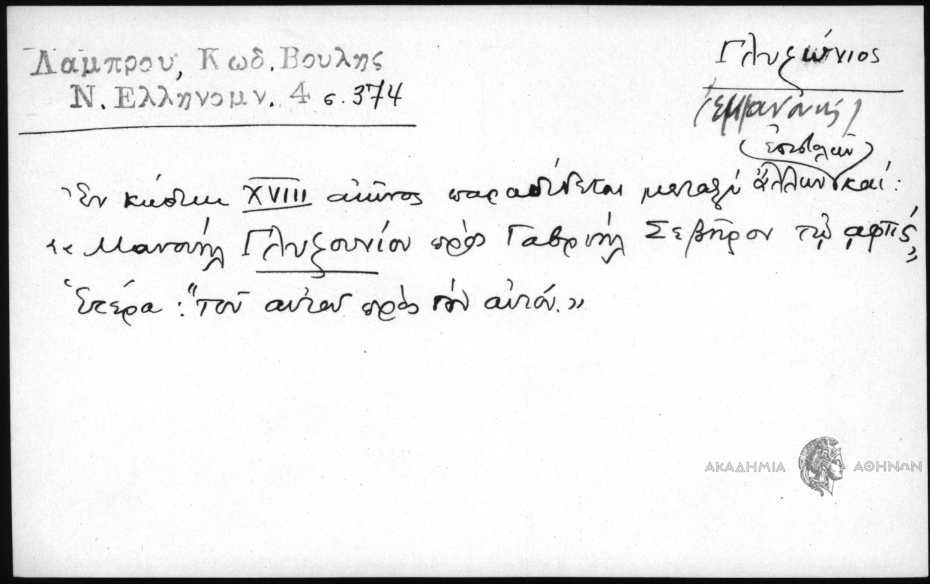 Λάμπρου, Κωδ. Βουλης
Ν. Ελληνομν. 4 σ. 374
Γλυξώνιος
(Ἐμμανουὴλ)
(ἐπιστολῶν)
Ἐν κώδικι XVIII αἰῶνος παρατίθεται μεταξὺ ἄλλων καί:
«Μανουὴλ Γλυζουνίου πρὸς Γαβριὴλ Σεβῆρον τῷ αφπς΄»
Ἑτέρα: "τοῦ αὐτοῦ πρὸς τὸν αὐτόν.»
ΑΚΑΔΗΜΙΑ ΑΘΗΝΩΝ